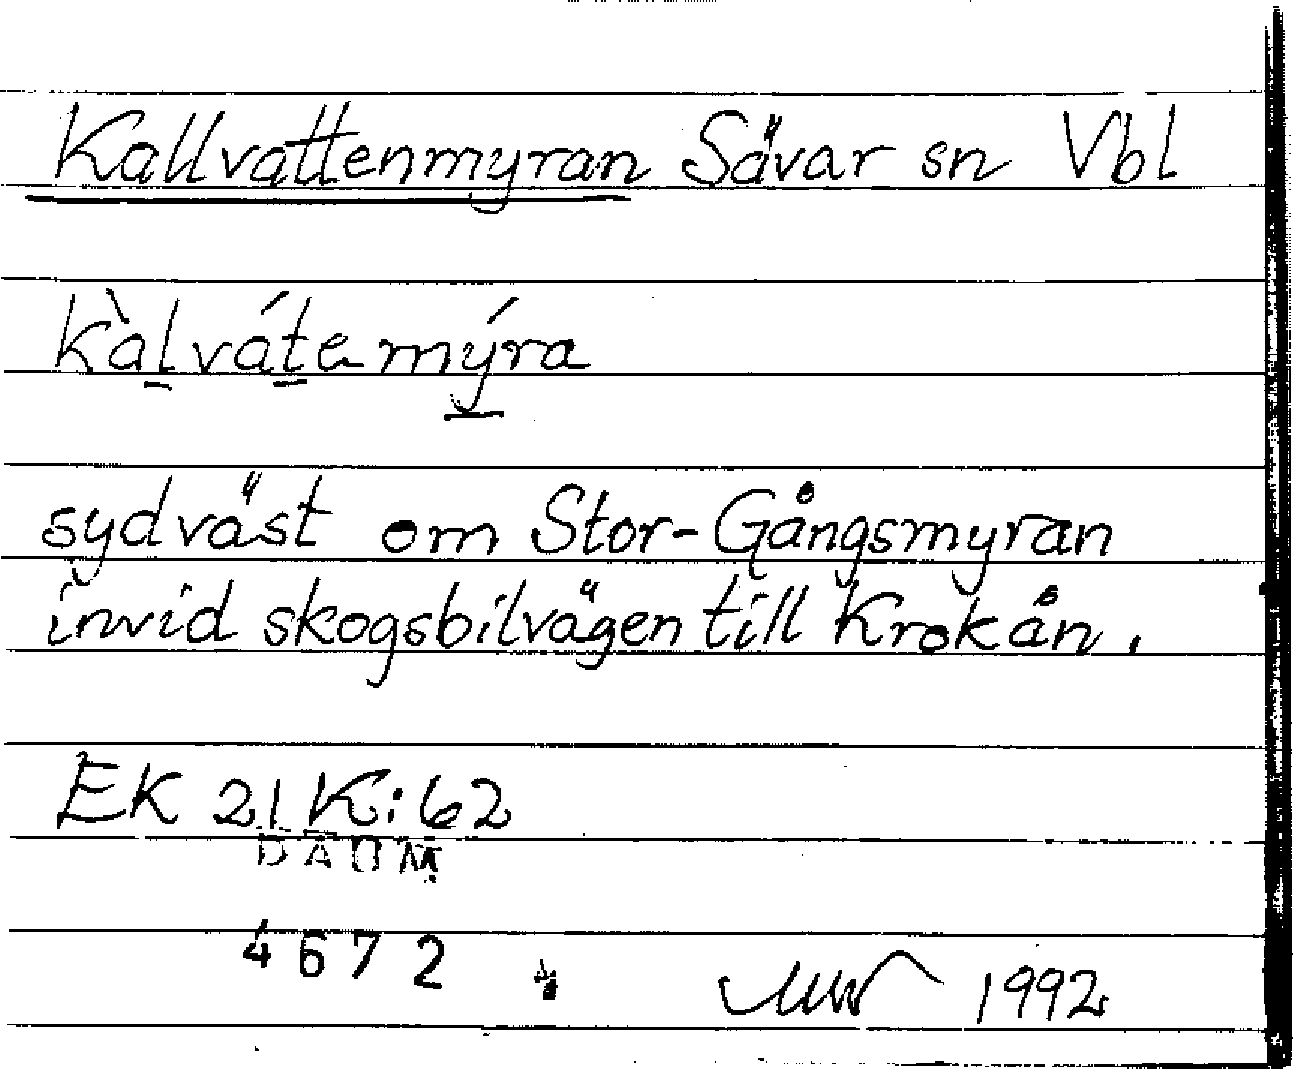 Kallvattenmyran Sävar sn Vbl
kàlvátemýra
sydväst om Stor-Gångsmyran
invid skogsbilvägen till Krokån.
EK 21 K:62
DAUM
4672
1992